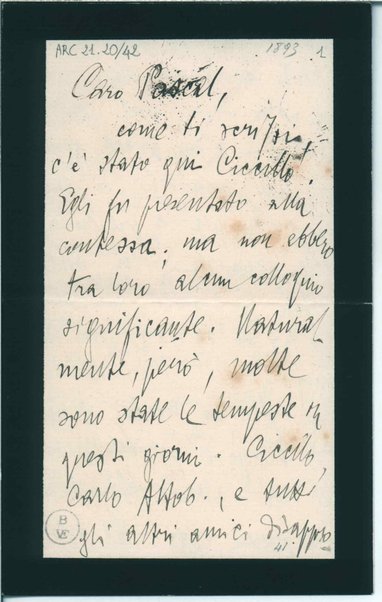 ARC 21.20/42
1893 1
Caro Pascal,
come ti scrissi,
c'è stato qui Ciccillo.
Egli fu presentato alla
contessa; ma non ebbero
tra loro alcun colloquio
significante. Natural-
mente, però, molte
sono state le tempeste in
questi giorni. Ciccillo,
Carlo Altob., e tutti
gli altri amici disappro-
B
VE
41